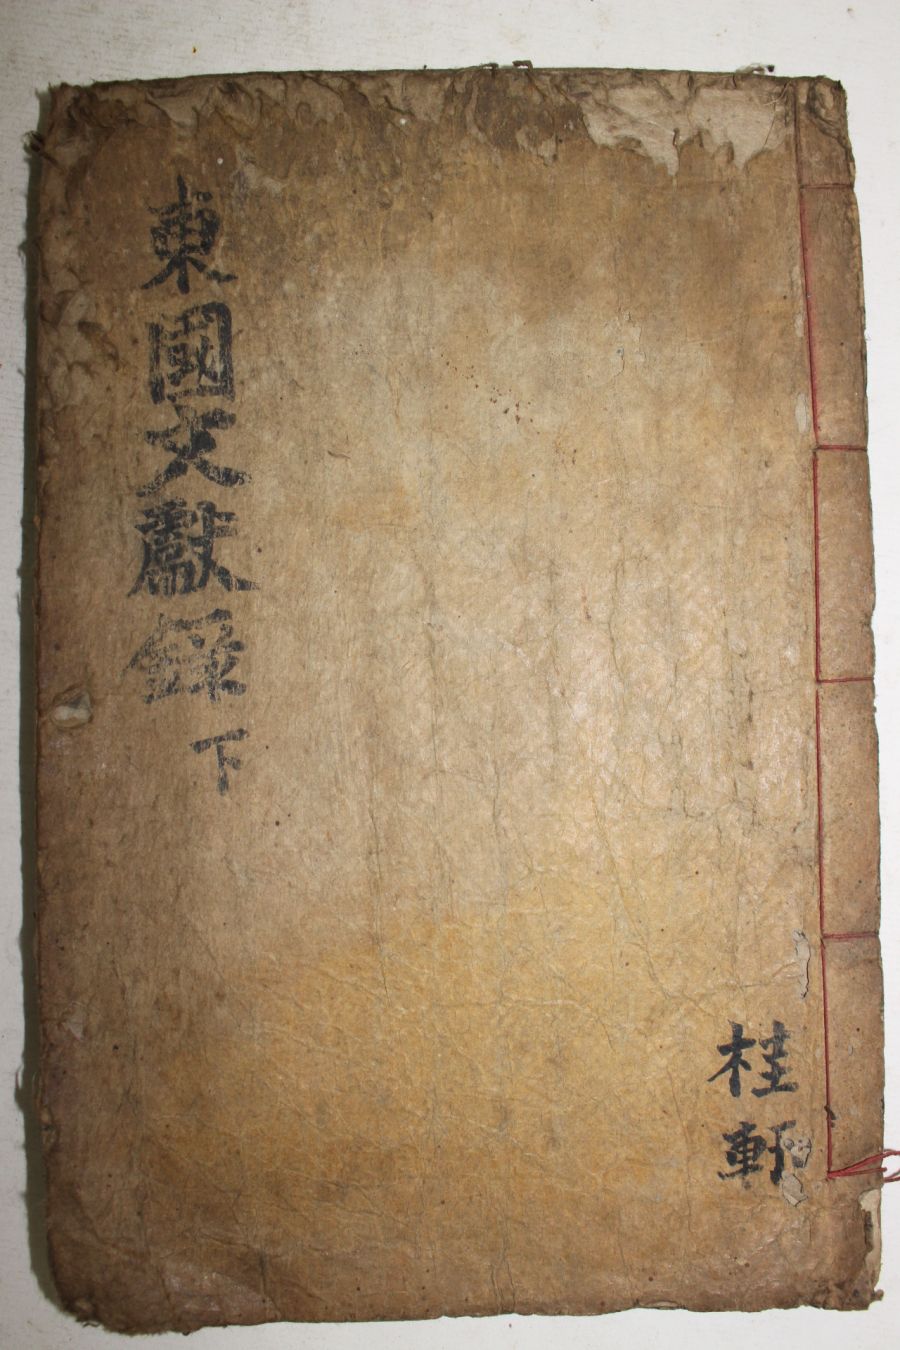 東國文獻錄 下
桂軒